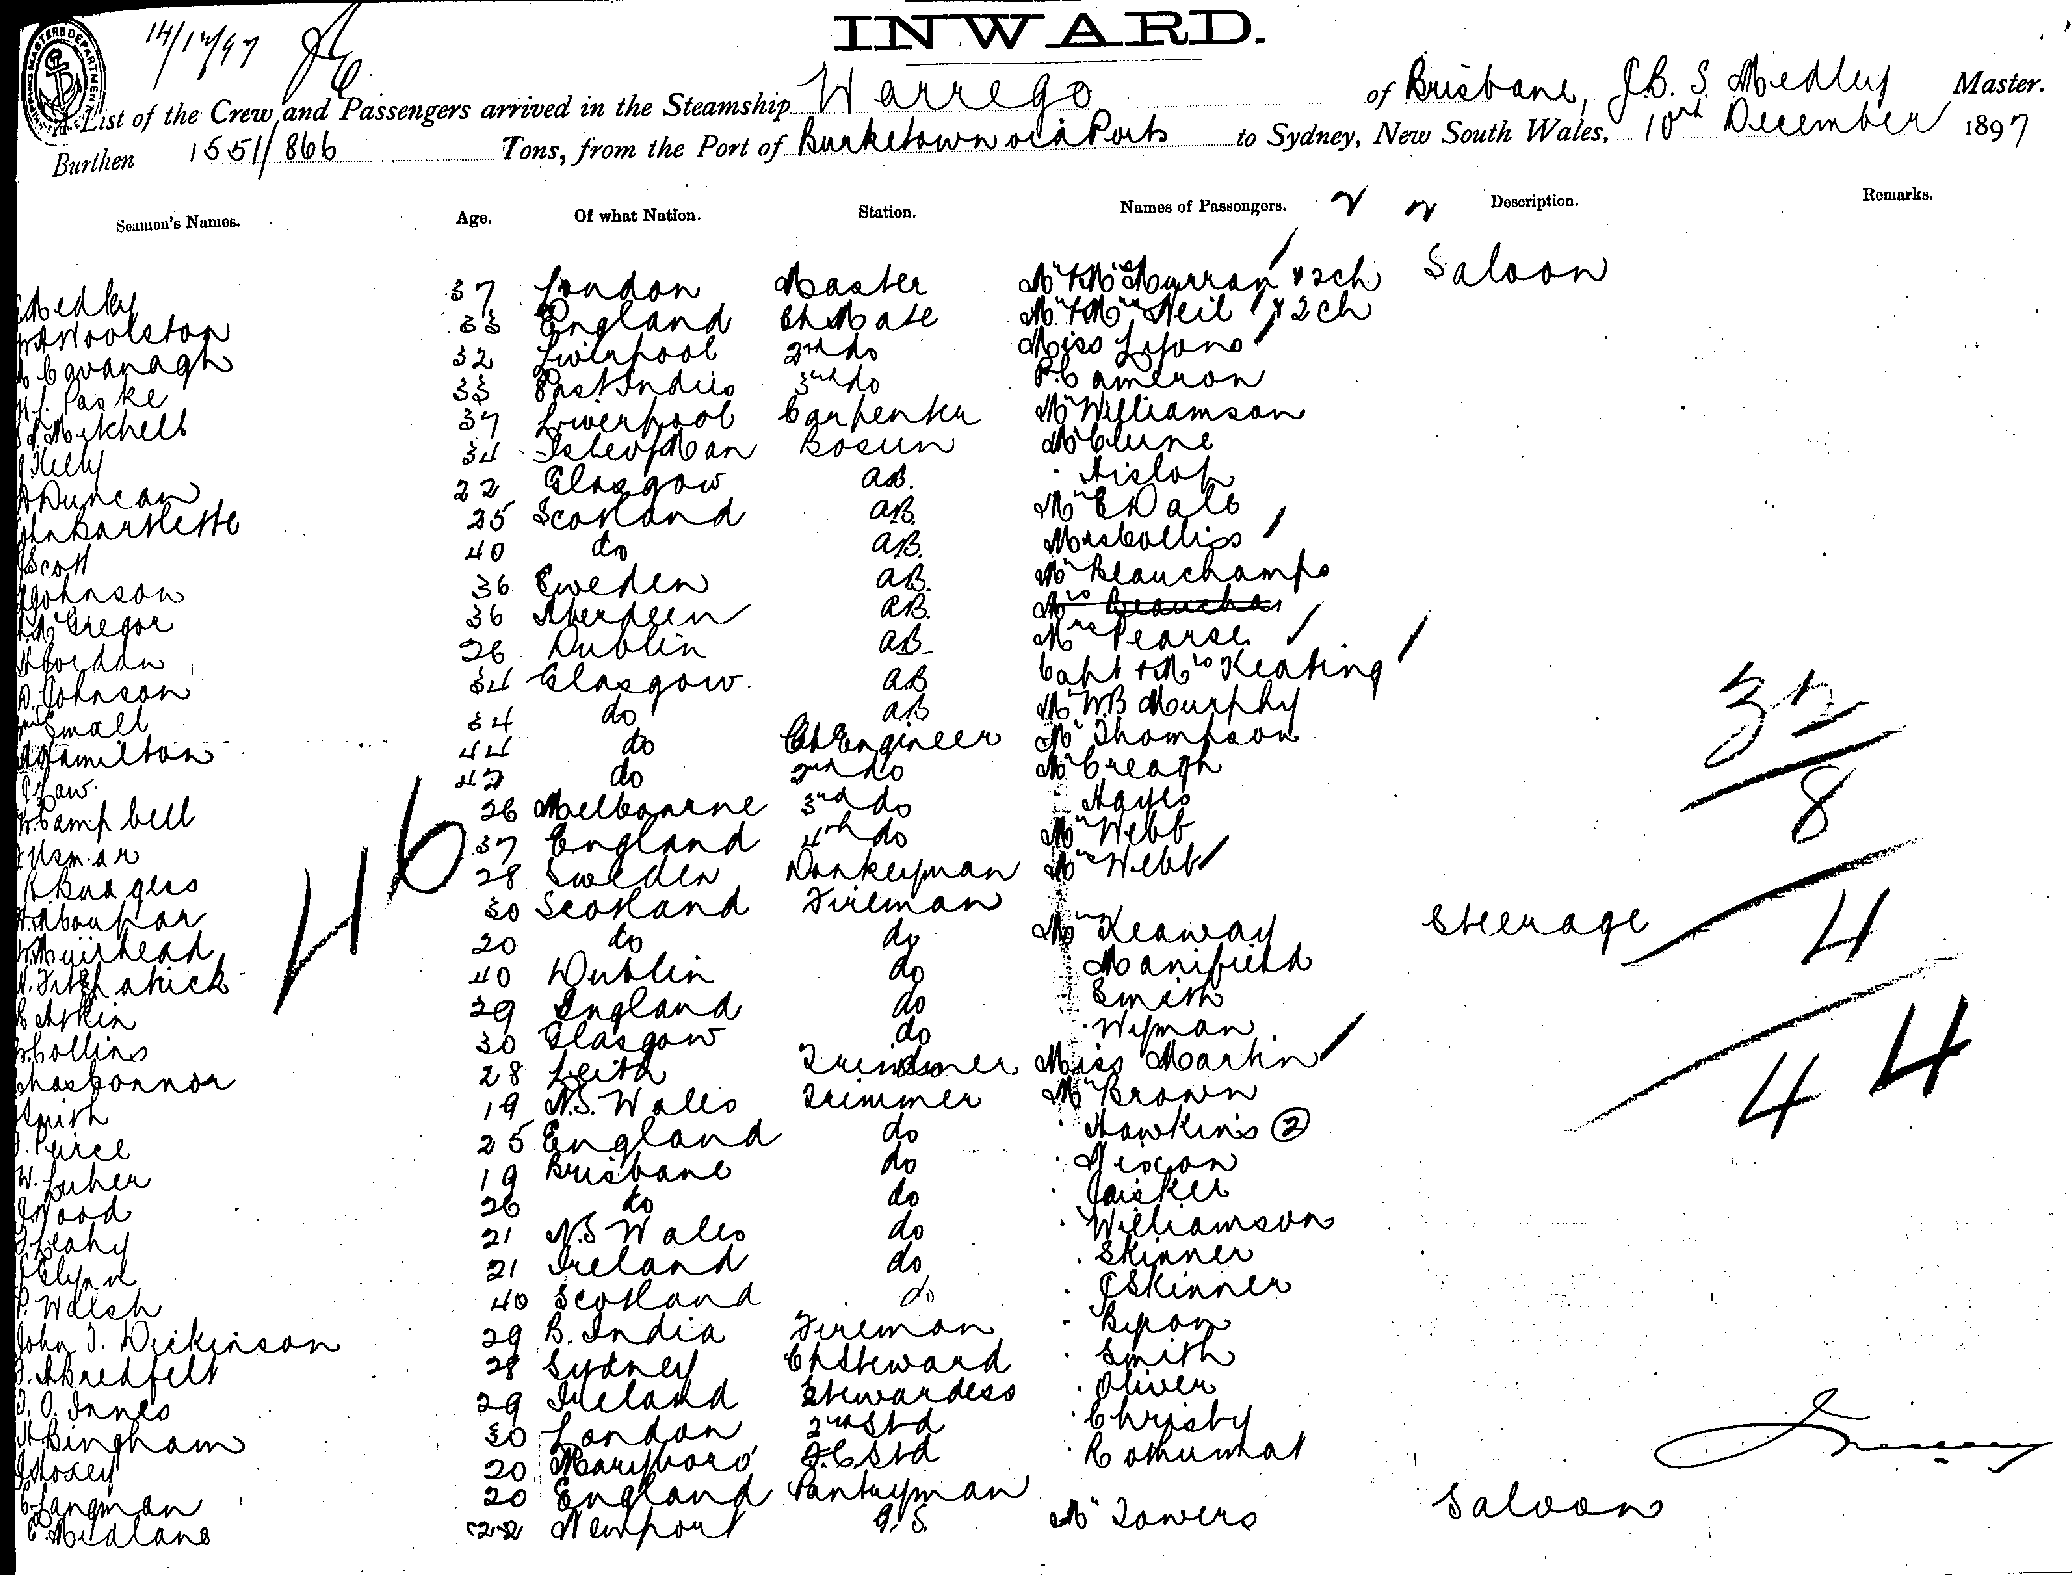 14/12/97
INWARD.
A List of the Crew and Passengers arrived in the Steamship Warrego of Brisbane, J.B. S. Medley Master.
Burthen 1551/866 Tons, from the Port of Burketown via Ports to Sydney, New South Wales, 10th December 1897
Seamen's Names. Age. Of what Nation. Station. Names of Passengers. Description. Remarks.
Medley 37 London Master Mr & Mrs Murray & 2ch Saloon
Woolston 33 England Ch Mate Mr & Mrs Neil & 2ch
Cavanagh 32 Liverpool 2nd do Miss Lyons
Paske 33 East Indies 3rd do P. Cameron
Mitchell 37 Liverpool Carpenter Mr Williamson
Kelly 34 Isle of Man Bosun McClune
Duncan 22 Glasgow AB. Hislop
Bartlette 25 Scotland AB. Mr E Dale
Scott 40 do AB. Mrs Colliss
Johnson 36 Sweden AB. Mr Beauchamp
McGregor 36 Aberdeen AB.
26 Dublin AB. Mrs Pearse
Johnson 34 Glasgow. AB Capt & Mrs Keating
Small 34 do AB Mr WB Murphy
Hamilton 44 do Ch Engineer Mr Thompson
Law. 42 do 2nd do Mr Creagh
Campbell 26 Melbourne 3rd do Hayes
Usmar 37 England 4th do Mr Webb
Burgess 28 Sweden Donkeyman Mrs Webb
30 Scotland Fireman
Muirhead 20 do do Mr Keaway Steerage
Fitzpatrick 40 Dublin do Manifield
29 England do Smith
Collins 30 Glasgow do Wyman
Chas Connor 28 Leith Miss Martin
Smith 19 N.S. Wales Trimmer Mr Brown
Peirce 25 England do Hawkins 2
W. 19 Brisbane do Nixon
Wood 26 do do
Leahy 21 N.S Wales do Williamson
Glynn 21 Ireland do Skinner
P. Walsh 40 Scotland do J Skinner
John J. Dickinson 29 B. India Fireman Byron
28 Sydney Ch Steward Smith
Innes 29 Ireland Stewardess Oliver
Bingham 30 London 2nd Std Christy
20 Maryboro' F.C Std
Langman 20 England Pantryman
Medland 22 Newport G.S. Mr Towers Saloon
46
32
8
4
44